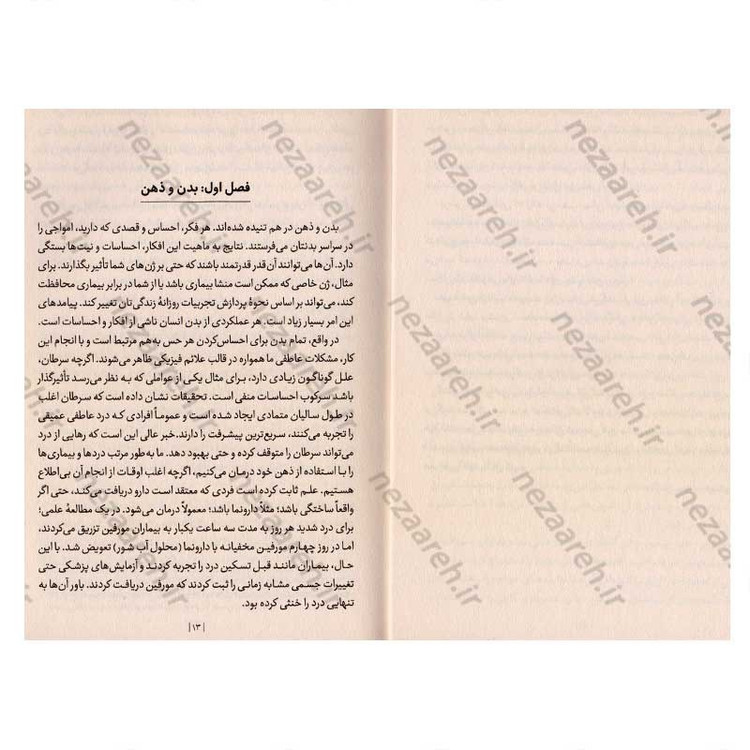 فصل اول: بدن و ذهن
بدن و ذهن در هم تنیده شده‌اند. هر فکر، احساس و قصدی که دارید، امواجی را
در سراسر بدنتان می‌فرستند. نتایج به ماهیت این افکار، احساسات و نیت‌ها بستگی
دارد. آن‌ها می‌توانند آن‌قدر قدرتمند باشند که حتی بر ژن‌های شما تأثیر بگذارند. برای
مثال، ژن خاصی که ممکن است منشا بیماری باشد یا از شما در برابر بیماری محافظت
کند، می‌تواند بر اساس نحوهٔ پردازش تجربیات روزانهٔ زندگی‌تان تغییر کند. پیامدهای
این امر بسیار زیاد است. هر عملکردی از بدن انسان ناشی از افکار و احساسات است.
در واقع، تمام بدن برای احساس‌کردن هر حس به‌هم مرتبط است و با انجام این
کار، مشکلات عاطفی ما همواره در قالب علائم فیزیکی ظاهر می‌شوند. اگرچه سرطان،
علل گوناگون زیادی دارد، برای مثال یکی از عواملی که به نظر می‌رسد تأثیرگذار
باشد سرکوب احساسات منفی است. تحقیقات نشان داده است که سرطان اغلب
در طول سالیان متمادی ایجاد شده است و عموماً افرادی که درد عاطفی عمیقی
را تجربه می‌کنند، سریع‌ترین پیشرفت را دارند.خبر عالی این است که رهایی از درد
می‌تواند سرطان را متوقف کرده و حتی بهبود دهد. ما به‌طور مرتب دردها و بیماری‌ها
را با استفاده از ذهن خود درمان می‌کنیم، اگرچه اغلب اوقات از انجام آن بی‌اطلاع
هستیم. علم ثابت کرده است فردی که معتقد است دارو دریافت می‌کند، حتی اگر
واقعاً ساختگی باشد؛ مثلاً دارونما باشد؛ معمولاً درمان می‌شود. در یک مطالعهٔ علمی؛
برای درد شدید هر روز به مدت سه ساعت یکبار به بیماران مورفین تزریق می‌کردند،
اما در روز چهارم مورفین مخفیانه با دارونما (محلول آب شور) تعویض شد. با این
حال، بیماران مانند قبل تسکین درد را تجربه کردند و آزمایش‌های پزشکی حتی
تغییرات جسمی مشابه زمانی را ثبت کردند که مورفین دریافت کردند. باور آن‌ها به
تنهایی درد را خنثی کرده بود.
|۱۳|
nezaareh.ir
nezaareh.ir
nezaareh.ir
nezaareh.ir
nezaareh.ir
nezaareh.ir